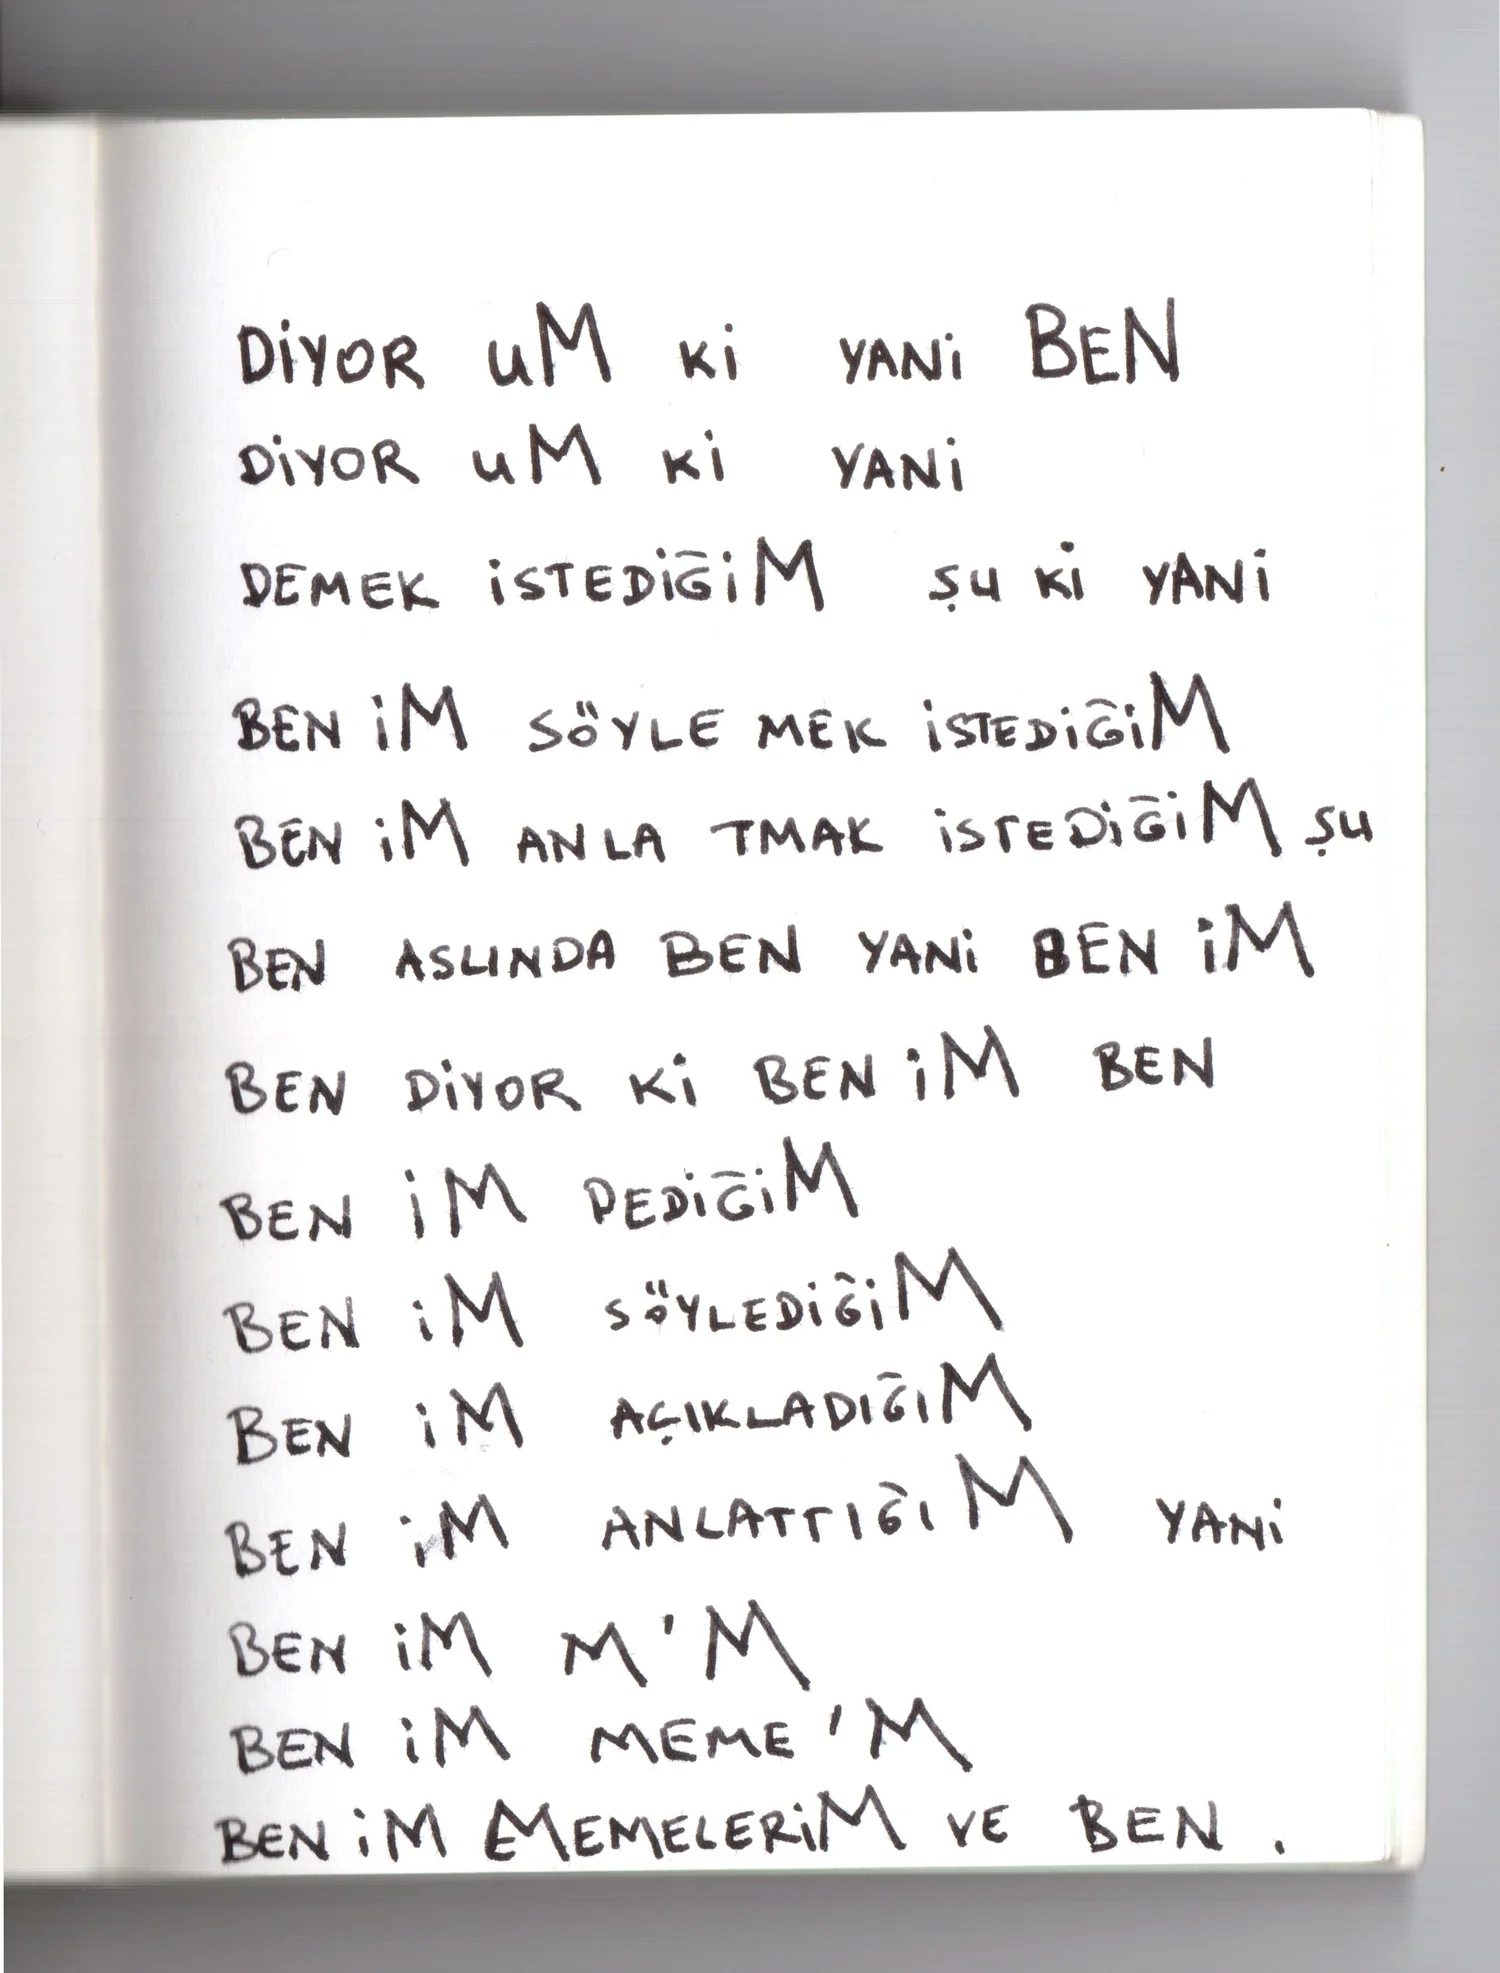 DİYOR uM Kİ YANİ BEN
DİYOR uM Kİ YANİ
DEMEK İSTEDİĞİM ŞU Kİ YANİ
BEN İM SÖYLE MEK İSTEDİĞİM
BEN İM ANLA TMAK İSTEDİĞİM ŞU
BEN ASLINDA BEN YANİ BEN İM
BEN DİYOR Kİ BEN İM BEN
BEN İM DEDİĞİM
BEN İM SÖYLEDİĞİM
BEN İM AÇIKLADIĞIM
BEN İM ANLATTIĞI M YANİ
BEN İM M'M
BEN İM MEME'M
BEN İM MEMELERİM VE BEN .